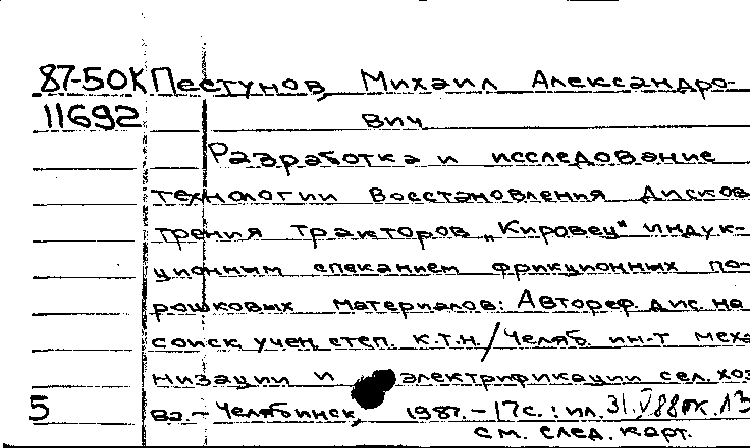 87-50К Пестунов, Михаил Александро-
11692 вич
Разработка и исследование
технологии восстановления дисков
трения тракторов „Кировец" индук-
ционным спеканием фрикционных по-
рошковых материалов: Автореф. дис. на
соиск. учен. степ. к.т.н. / Челяб. ин-т меха
низации и электрификации сел. хоз
5 ва. - Челябинск, 1987. - 17с. : ил. 31.V88
см. след. карт.